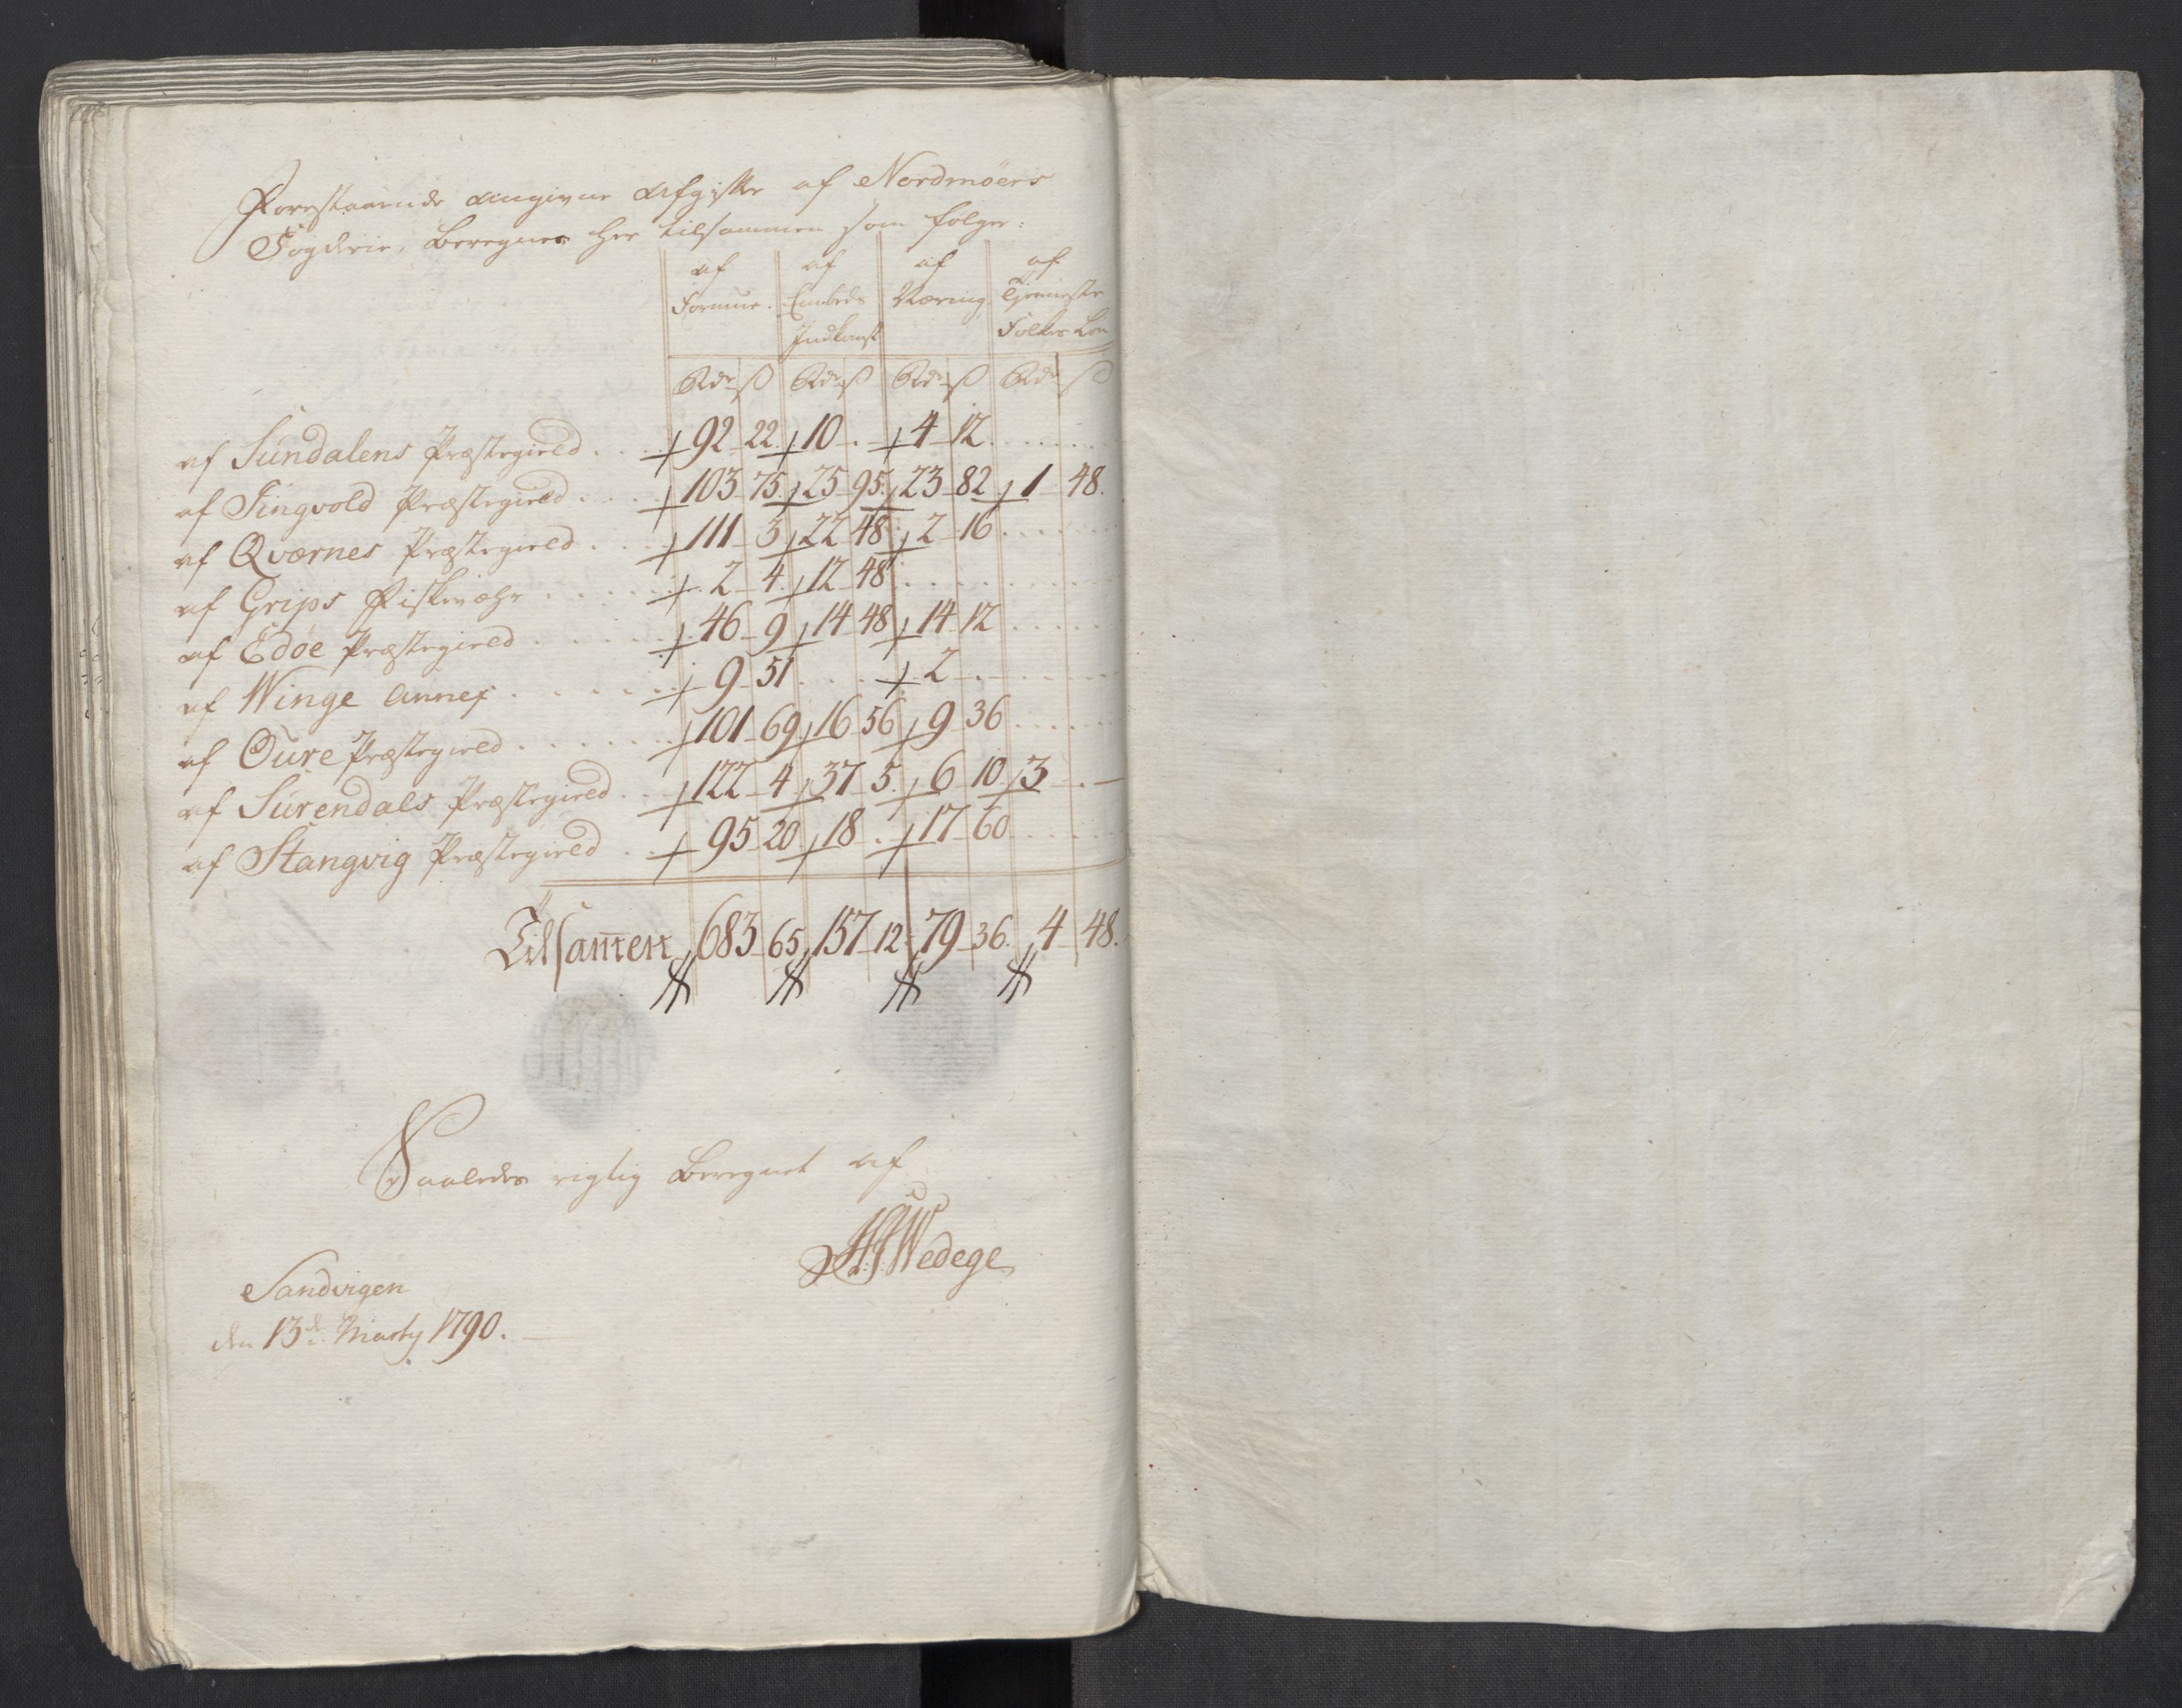 Forestaaende angivne Afgifter af Nordmöers
Fogderie, Beregnes her tilsammen som følger:
af Formue. | af Embeds Indkomst | af Næring | af Tjeneste Folkes Løn
Rdr ß | Rdr ß | Rdr ß | Rdr ß
af Sundalens Præstegield . . 92 22. 10 . 4 12. . . . .
af Tingvold Præstegield . . . . 103 75. 25 95. 23 82 1 48.
af Qværnes Præstegield . . . 111 3 22 48 2 16 . . . .
af Grips Fiskevæhr . . . . . 2 4. 12 48 . . . . . .
af Edöe Præstegield . . . . . 46 9 14 48 14 12 . . . .
af Winge Annex . . . . . . 9 51 . . . 2 . . . .
af Oure Præstegield . . . . . . 101 69 16 56 9 36 . . . .
af Surendals Præstegield . . . 122 4 37 5. 6 10 3 . —
af Stangvig Præstegield . . . 95 20 18 . 17 60 . . . .
Tilsam̅en 683 65 157 12 79 36. 4 48.
Saaledes rigtig Beregnet af
Wedege
Sandvigen
den 13de Marty 1790.